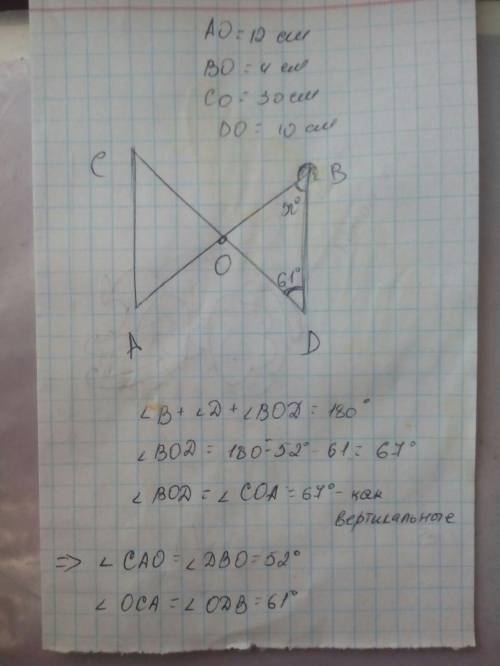 AO = 12 см
BO = 4 см
CO = 30 см
DO = 10 см
C
B
52°
O
61°
A
D
∠B + ∠D + ∠BOD = 180°
∠BOD = 180° - 52° - 61 = 67°
∠BOD = ∠COA = 67° - как
вертикальные
=> ∠CAO = ∠DBO = 52°
∠OCA = ∠ODB = 61°